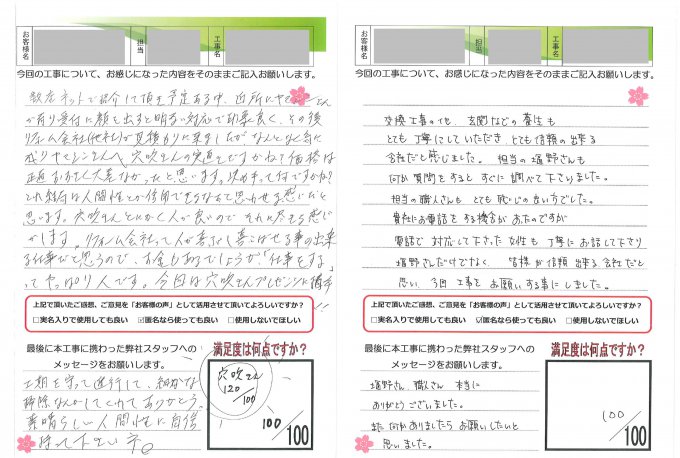 お客様名
担当
工事名
今回の工事について、お感じになった内容をそのままご記入お願いします。
数店ネットで紹介して頂き予定ある中、近所にヤマ
が有り受付に顔を出すと明るい対応で印象良く、その後
リフォーム会社(他社)が見積りに来ましたが、なんとなく気に
穴吹さんの
思います。穴吹さんとにかく人が良いので それに尽きる感じ
がします。リフォーム会社って人が喜ぶ
仕事だと思うので、お金もあるでしょうが「仕事をする」
ってやっぱり人です。今回は穴吹さん
上記で頂いたご感想、ご意見を「お客様の声」として活用させて頂いてよろしいですか？
□実名入りで使用しても良い ☑匿名なら使っても良い □使用しないでほしい
最後に本工事に携わった弊社スタッフへの
メッセージをお願いします。
工期を守って進行して、細かな
掃除なんかしてくれてありがとう。
素晴らしい人間性に自信
持って下さいネ。
満足度は何点ですか？
穴吹さん
120/100
100
/100
お客様名
担当
工事名
今回の工事について、お感じになった内容をそのままご記入お願いします。
交換工事の他、玄関などの養生も
とても丁寧にしていただき、とても信頼の出来る
会社だと感じました。担当の塩野さんも
何か質問をするとすぐに調べて下さいました。
担当の職人さんも とても感じの良い方でした。
貴社にお電話をする機会があったのですが
電話で対応して下さった女性も丁寧にお話して下さり
塩野さんだけでなく、皆様が信頼出来る会社だと
思い、今回工事をお願いする事にしました。
上記で頂いたご感想、ご意見を「お客様の声」として活用させて頂いてよろしいですか？
□実名入りで使用しても良い ☑匿名なら使っても良い □使用しないでほしい
最後に本工事に携わった弊社スタッフへの
メッセージをお願いします。
塩野さん、職人さん 本当に
ありがとうございました。
また何かありましたらお願いしたいと
思いました。
満足度は何点ですか？
100
/100